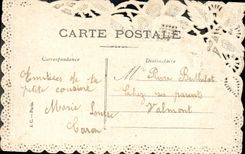 CARTE POSTALE
Correspondance
Destinataire
Amitiés de la
petite cousine
Marie Louise
Caron
Mlle Pierre Berthelot
Chez ses parents
Valmont